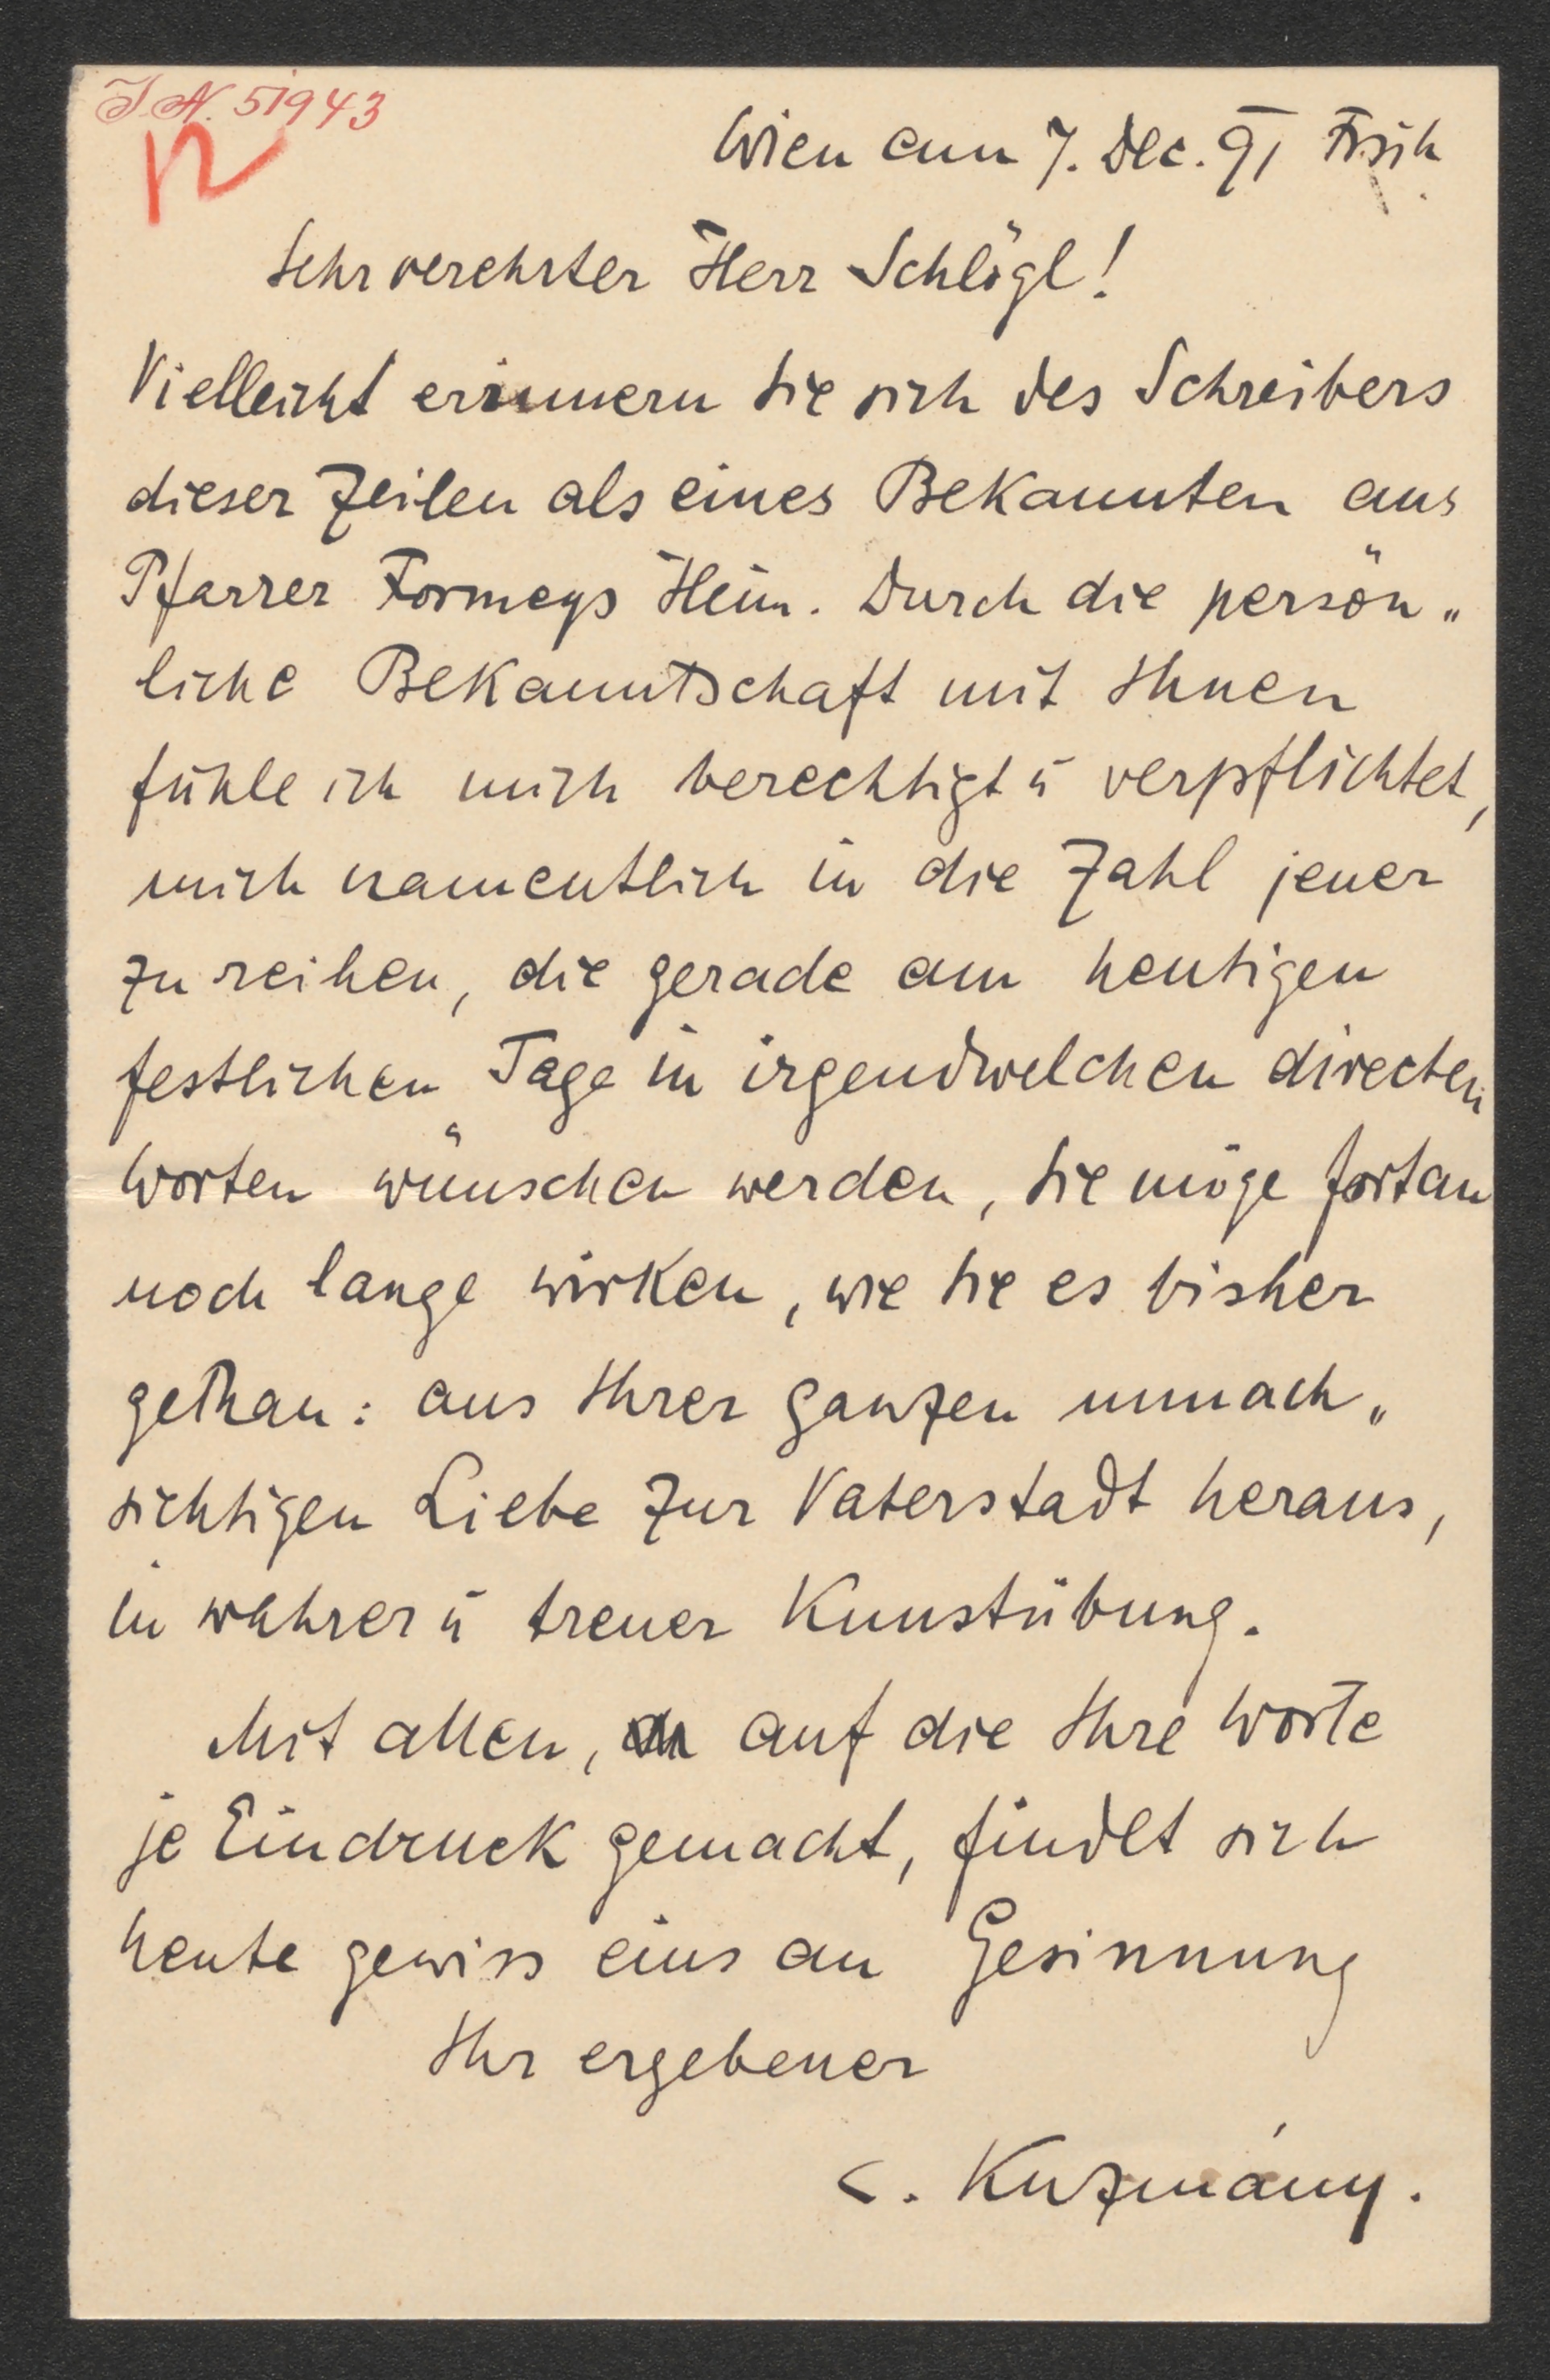 J. N. 51943
Wien am 7. Dec. 91 Früh
Sehr verehrter Herr Schlögl!
Vielleicht erinnern Sie sich des Schreibers
dieser Zeilen als eines Bekannten aus
Pfarrer Formeys Heim. Durch die persön„
liche Bekanntschaft mit Ihnen
fühle ich mich berechtigt u verpflichtet,
mich namentlich in die Zahl jener
zu reihen, die gerade am heutigen
festlichen Tage in irgendwelchen directen
Worten wünschen werden, Sie möge fortan
noch lange wirken, wie Sie es bisher
gethan: aus Ihrer ganzen unnach„
sichtigen Liebe zur Vaterstadt heraus,
in wahrer u treuer Kunstübung.
Mit allen, auf die Ihre Worte
je Eindruck gemacht, findet sich
heute gewiss eins an Gesinnung
Ihr ergebener
C. Kuzmány.